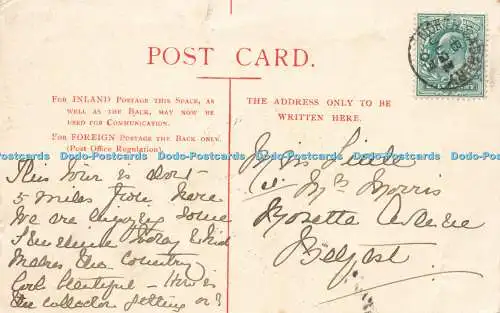 POST CARD.
FOR INLAND POSTAGE THIS SPACE, AS
WELL AS THE BACK, MAY NOW BE
USED FOR COMMUNICATION.
FOR FOREIGN POSTAGE THE BACK ONLY.
(Post Office Regulation).
THE ADDRESS ONLY TO BE
WRITTEN HERE.
Dodo-Postcards Dodo-Postcards Dodo-Postcards Dodo-Postcards Dodo-Postcards Dodo-Postcards
This Tower is about
5 miles from here
We are enjoying some
Sunshine today which
makes the Country
look beautiful – How is
the collector getting on?
Miss Little
c/o Mrs Morris
Rosetta Avenue
Belfast